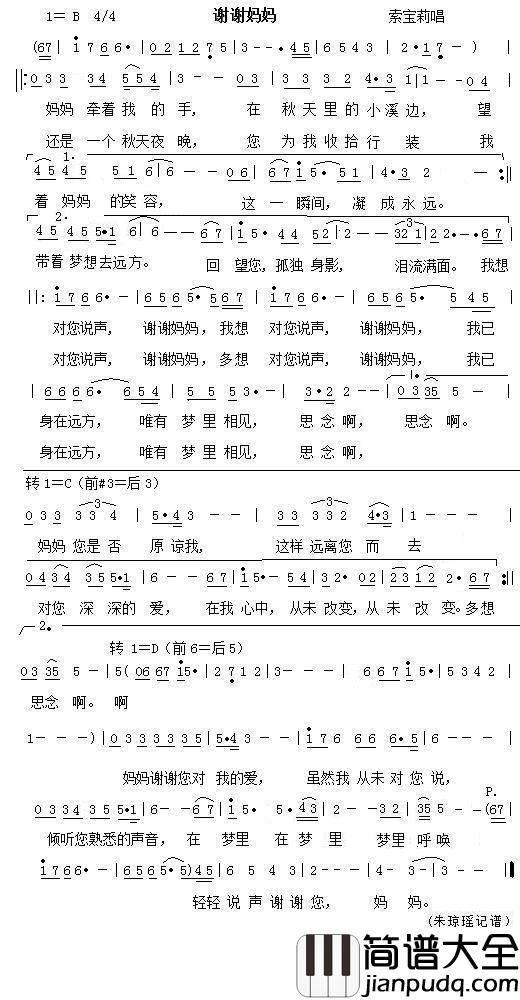 谢谢妈妈
索宝莉唱
1＝ B 4/4
(67 | 1 7 6 6· | 0 2 1 2 7 5 | 3 - - 4 5 | 6 5 4 3 | 2· 1 7 - )
||: 0 3 3 3 4 | 5 5 4 | 3 - - 0 3 | 3 3 3 2 4·3 | 1 1 - - 0 4 |
妈妈 牵着 我 的 手， 在 秋 天 里 的 小 溪 边， 望
还是 一个 秋天夜 晚， 您 为 我 收拾 行 装 我
1.
4 5 4 5 5 5 1 | 6 6 - - 0 6 | 6 7 1 5· 5 1 | 4·3 2 - :||
着 妈妈 的笑 容， 这 一 瞬间， 凝 成 永 远。
2.
4 5 4 5 5·1 | 6 6 - 6 7 | 1 5· 4 4 5 2 | 2 - 3 2 1 | 2 2· - 6 7 |
带着 梦想 去远 方。 回 望您，孤独 身影， 泪流 满面。我想
||: 1 7 6 6· - | 6 5 6 5· 5 6 7 | 1 7 6 6· - | 6 5 6 5· 5 4 5 |
对您说声， 谢谢妈妈，我想 对您说声， 谢谢妈妈， 我已
对您说声， 谢谢妈妈，多想 对您说声， 谢谢妈妈， 我已
1.
| 6 6 6 6· 6 5 4 | 5 5 5 3· - | 3·2 2 - - | 0 3 3 5 5 - |
身在远方， 唯有 梦 里 相见， 思 念 啊， 思念 啊。
身在远方， 唯有 梦 里 相见， 思 念 啊，
转 1＝C（前#3＝后 3）
0 3 3 3 3 4 | 5·4 3 - - | 3 3 3 3 2 4·3 | 1 - - -
妈妈 您是 否 原 谅我， 这样 远离您 而 去
0 4 3 4 3 5 5·1 | 6 - - 6 7 | 1 5· 5 4 | 3 2· 0 2 | 2 3 1 2 2· 6 7 :||
对您 深 深的 爱， 在我 心中，从未 改变，从 未 改 变。多想
2.
转 1＝D（前 6＝后 5）
0 3 3 5 5 - | 5( 0 6 6 7 1 5· | 2 7 1 2 | 3 - - - | 6 6 7 1 5· | 5 3 4 2 |
思念 啊。啊
1 - - ) | 0 3 3 3 3 3 5 | 5·4 3 - - | 1 7 6 6 6 6·5 | 6 - - |
妈妈谢谢您对 我的爱， 虽然我 从未 对 您 说，
0 3 3 4 3 5 5·1 | 6 - - 6 7 | 1 5· 5· 4 3 | 2 - - 3 2 | 3 5 5· - (67 |
P.
倾听您熟悉的声音， 在 梦里 在 梦 里 梦里 呼 唤
1 7 6 6· - | 6 5 6 5· 5)4 5 | 6 5 4 3 | 2 - - | 4 - 3· | 1 - - - ||
轻轻 说 声 谢 谢 您， 妈 妈。
（朱琼瑶记谱）
简谱大全
jianpudq.com